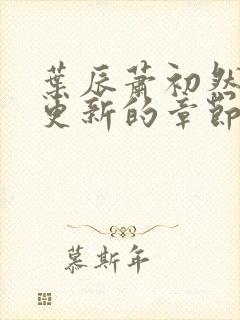 葉辰蕭初然
更新的章節
慕斯年